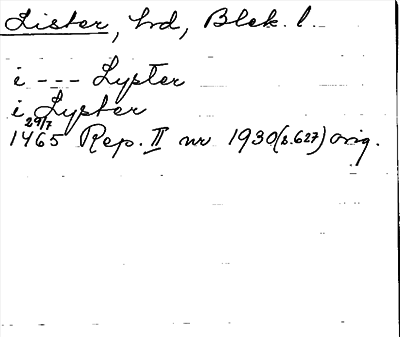 Lister, hd, Blek. l.
i --- Lypter
i Lypter
29/7
1465 Rep. II nr 1930 (s. 627) orig.